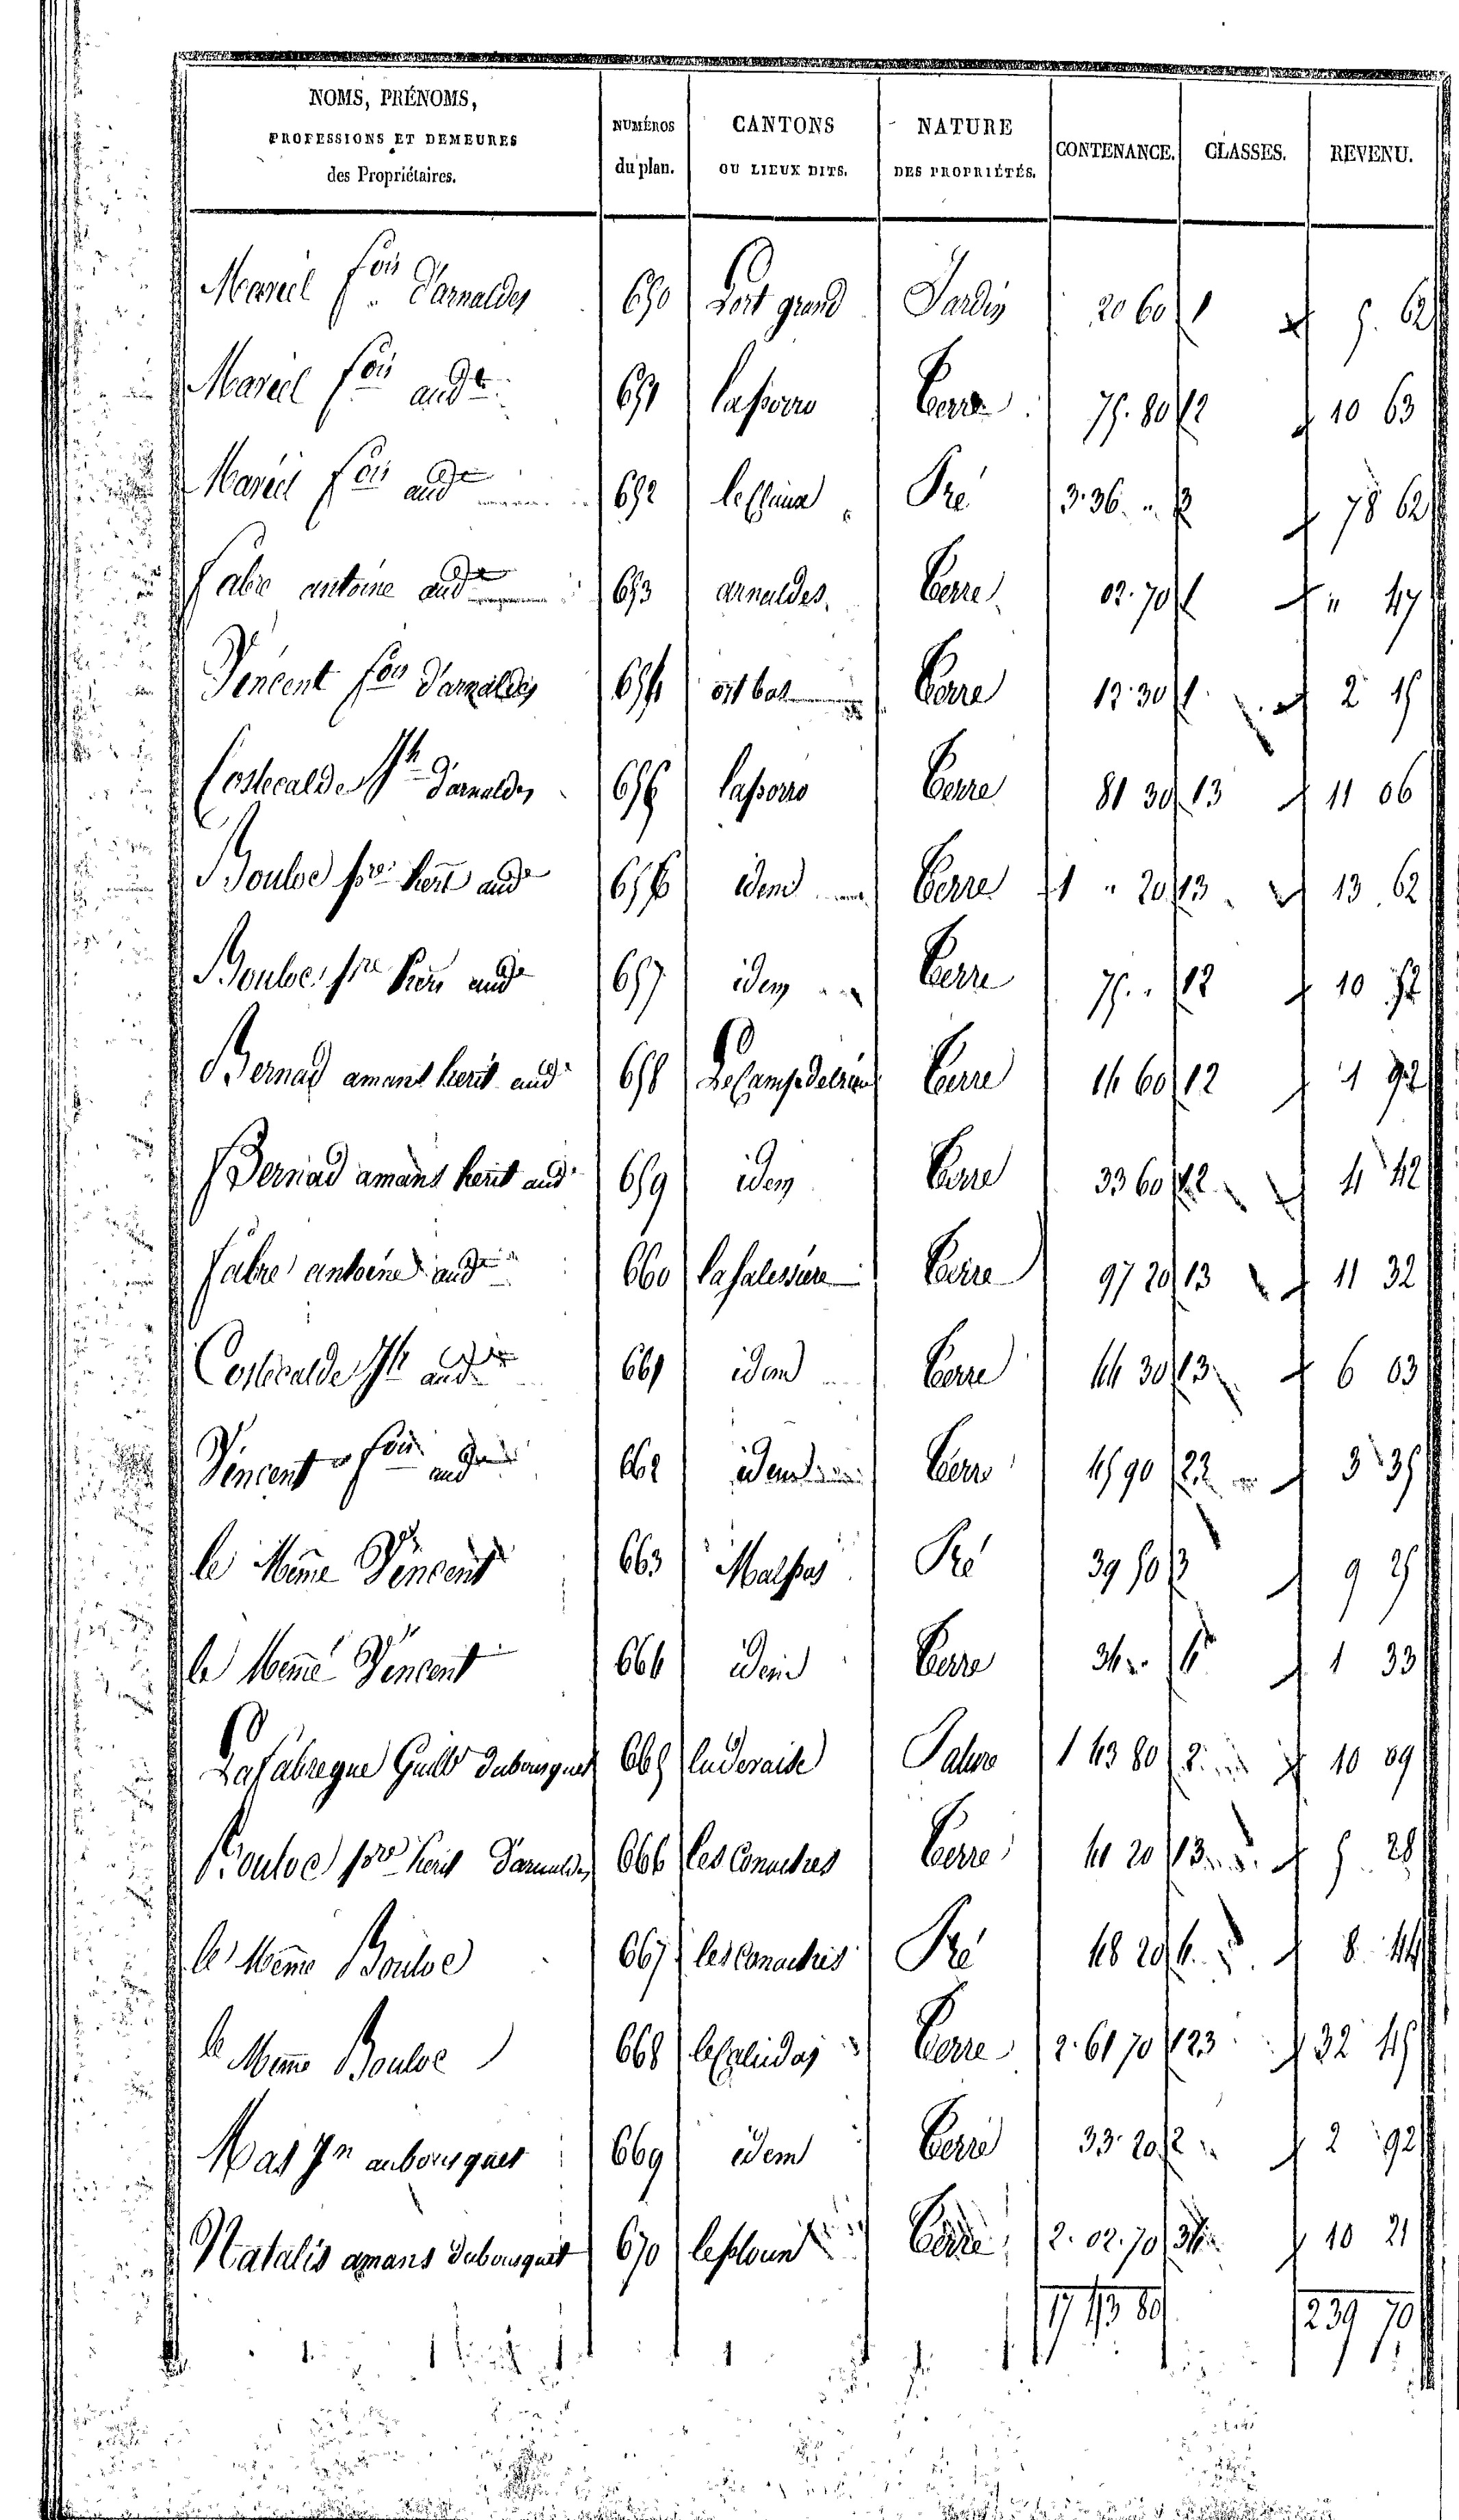 NOMS, PRÉNOMS, PROFESSIONS ET DEMEURES des Propriétaires. NUMÉROS du plan. CANTONS OU LIEUX DITS. NATURE DES PROPRIÉTÉS. CONTENANCE. CLASSES. REVENU.
fois D'arnaldes 650 Lort grand Jardin 20 60 1 5. 62
fois aud 651 Terre 75. 80 12 10 63
fois aud 652 Pré 3. 36. " 78 62
fabre antoine aud 653 arnaldes. Terre 02. 70 1 " 47
Vincent fois D'arnaldes 654 ort bas Terre 12. 30 1 2 15
Costecalde Jh D'arnaldes 655 Terre 81 30 13 11 06
Bouloc pre herit aud 656 idem Terre 1 " 20 13 13 62
Bouloc pre aud 657 idem Terre 75. " 12 10
Bernad amans herit aud 658 Terre 14 60 12 1 92
Bernad amans herit aud 659 idem Terre 33 60 12 4 42
fabre antoine aud 660 Terre 97 20 13 11 32
Costecalde Jh aud 661 idem Terre 44 30 13 6 03
Vincent fois aud 662 idem Terre 45 90 23 3 35
le Même Vincent 663 Malpas Pré 39 50 3 9 25
le Même Vincent 664 idem Terre 34 " 1 33
Lafabregue dubousquet 665 Pature 1 43 80 2 10 09
Bouloc pre herit D'arnaldes 666 Terre 41 20 13 5. 28
le Même Bouloc 667 Pré 48 20 4 8. 44
le Même Bouloc 668 Terre 2. 61 70 123 32 45
Mas Jn aubousquet 669 idem Terre 33. 20 2 2 92
Natalis amans dubousquet 670 Terre 2. 02. 70 34 10 21
17 13 80 239 70